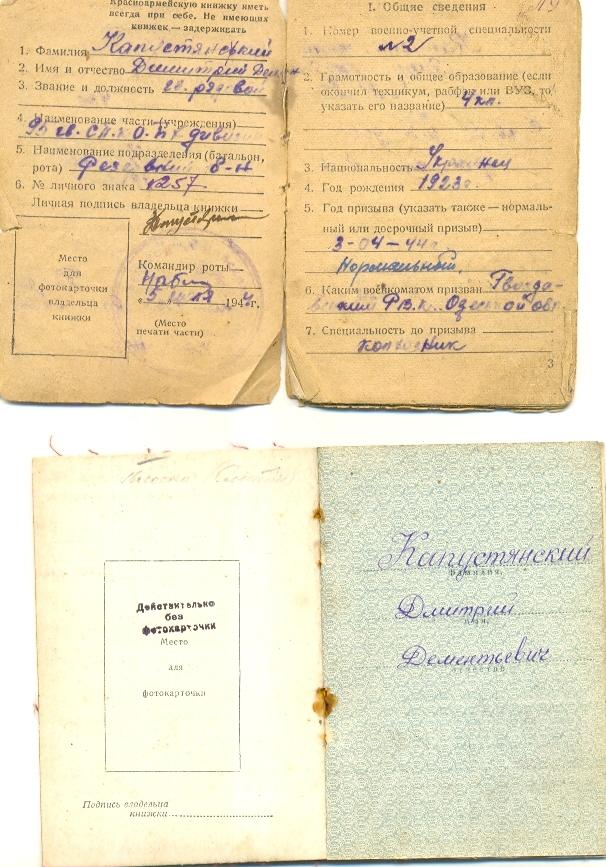 Красноармейскую книжку иметь
всегда при себе. Не имеющих
книжек — задерживать
1. Фамилия Капустянський
2. Имя и отчество Дмитрий
3. Звание и должность рядовой
4. Наименование части (учреждения)
95 гв.
5. Наименование подразделения (батальон,
рота)
6. № личного знака 1257
Личная подпись владельца книжки
Место
для
фотокарточки
владельца
книжки
Командир роты
"5" 194 г.
(Место
печати части)
1. Общие сведения
1. Номер военно-учетной специальности
№2
2. Грамотность и общее образование (если
окончил техникум, рабфак или ВУЗ, то
указать его название) 4 кл.
3. Национальность Украинец
4. Год рождения 1923 г.
5. Год призыва (указать также — нормаль-
ный или досрочный призыв)
3-04-44 г
Нормальный
6. Каким военкоматом призван Гвозда-
вский РВК. Одесской обл
7. Специальность до призыва
колхозник
3
Действительно
без
фотокарточки
Место
для
фотокарточки
Подпись владельца
книжки
Капустянский
фамилия,
Дмитрий
имя,
Дементьевич
отчество